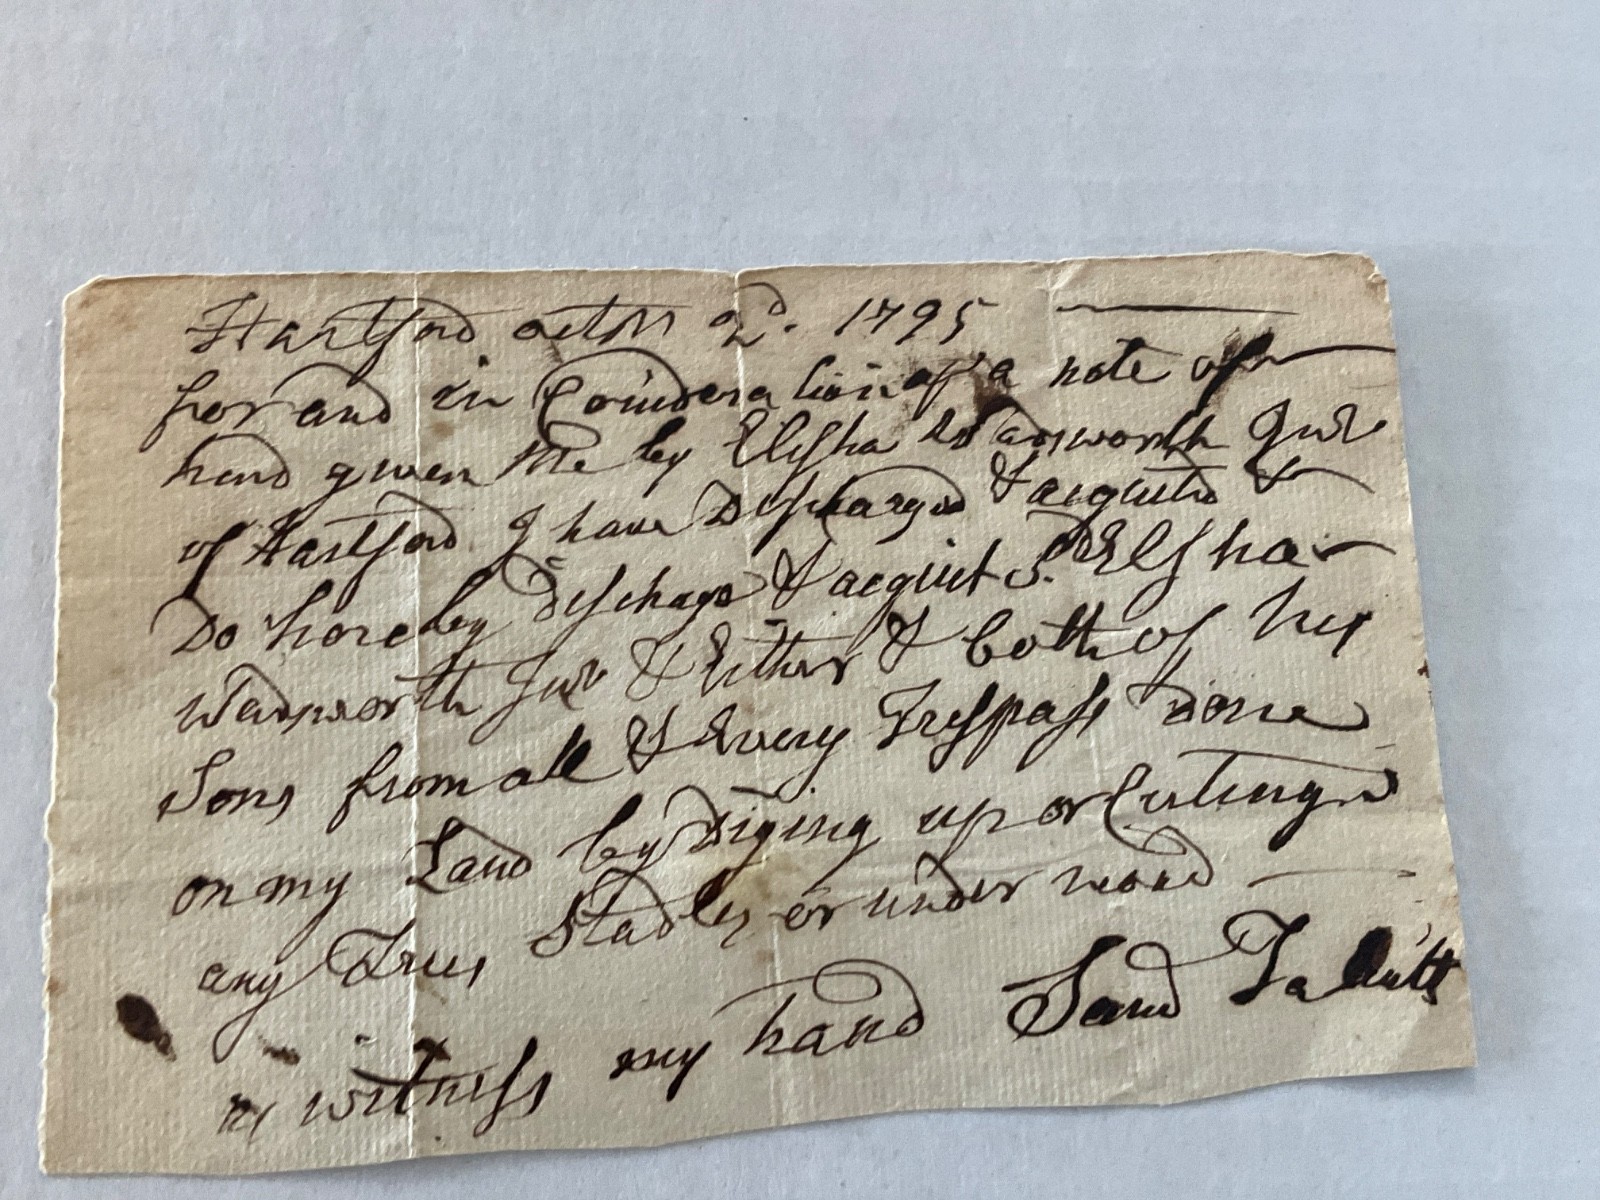 Hartford octbr 2d. 1795
for and in Coinderation of a note of
hand given me by Elisha Wadsworth Junr
of Hartford I have Discharged & acquitd &
Do hereby Discharge & acquit sd Elisha
Wadsworth Junr & Either & both of his
Sons from all & Every Trespass Done
on my Land by Diging up or Cutting
any Trees Stadles or under wood
as witness my hand Samll Talcutt